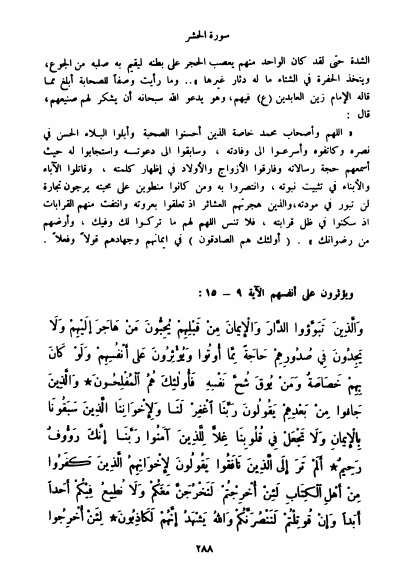 سورة الحشر
الشدة حتى لقد كان الواحد منهم يعصب الحجر على بطنه ليقيم به صلبه من الجوع،
ويتخذ الحفرة في الشتاء ما له دثار غيرها » .. وما رأيت وصفاً للصحابة أبلغ مما
قاله الإمام زين العابدين (ع) فيهم، وهو يدعو الله سبحانه أن يشكر لهم صنيعهم،
قال :
« اللهم وأصحاب محمد خاصة الذين أحسنوا الصحبة وأبلوا البلاء الحسن في
نصره وكانفوه وأسرعوا الى وفادته ، وسابقوا الى دعوتـه واستجابوا له حيث
أسمعهم حجة رسالاته وفارقوا الأزواج والأولاد في إظهار كلمته ، وقاتلوا الآباء
والأبناء في تثبيت نبوته ، وانتصروا به ومن كانوا منطوين على محبته يرجون تجارة
لن تبور في مودته، والذين هجرتهم العشائر اذ تعلقوا بعروته وانتفت منهم القرابات
اذ سكنوا في ظل قرابته ، فلا تنس اللهم لهم ما تركوا لك وفيك ، وأرضهم
من رضوانك » . ( أولئك هم الصادقون ) في ايمانهم وجهادهم قولاً وفعلاً .
ويؤثرون على أنفسهم الآية ٩ – ١٥ :
وَالَّذِينَ تَبَوَّؤُوا الدَّارَ وَالْإِيمَانَ مِنْ قَبْلِهِمْ يُحِبُّونَ مَنْ هَاجَرَ إِلَيْهِمْ وَلَا
يَجِدُونَ فِي صُدُورِهِمْ حَاجَةً مِمَّا أُوتُوا وَيُؤْثِرُونَ عَلَى أَنْفُسِهِمْ وَلَوْ كَانَ
بِهِمْ خَصَاصَةٌ وَمَنْ يُوقَ شُحَّ نَفْسِهِ فَأُولَئِكَ هُمُ الْمُفْلِحُونَ * وَالَّذِينَ
جَاءُوا مِنْ بَعْدِهِمْ يَقُولُونَ رَبَّنَا اغْفِرْ لَنَا وَلِإِخْوَانِنَا الَّذِينَ سَبَقُونَا
بِالْإِيمَانِ وَلَا تَجْعَلْ فِي قُلُوبِنَا غِلًّا لِلَّذِينَ آمَنُوا رَبَّنَا إِنَّكَ رَؤُوفٌ
رَحِيمٌ * أَلَمْ تَرَ إِلَى الَّذِينَ نَافَقُوا يَقُولُونَ لِإِخْوَانِهِمُ الَّذِينَ كَفَرُوا
مِنْ أَهْلِ الْكِتَابِ لَئِنْ أُخْرِجْتُمْ لَنَخْرُجَنَّ مَعَكُمْ وَلَا نُطِيعُ فِيكُمْ أَحَداً
أَبَداً وَإِنْ قُوتِلْتُمْ لَنَنْصُرَنَّكُمْ وَاللهُ يَشْهَدُ إِنَّهُمْ لَكَاذِبُونَ * لَئِنْ أُخْرِجُوا
٢٨٨